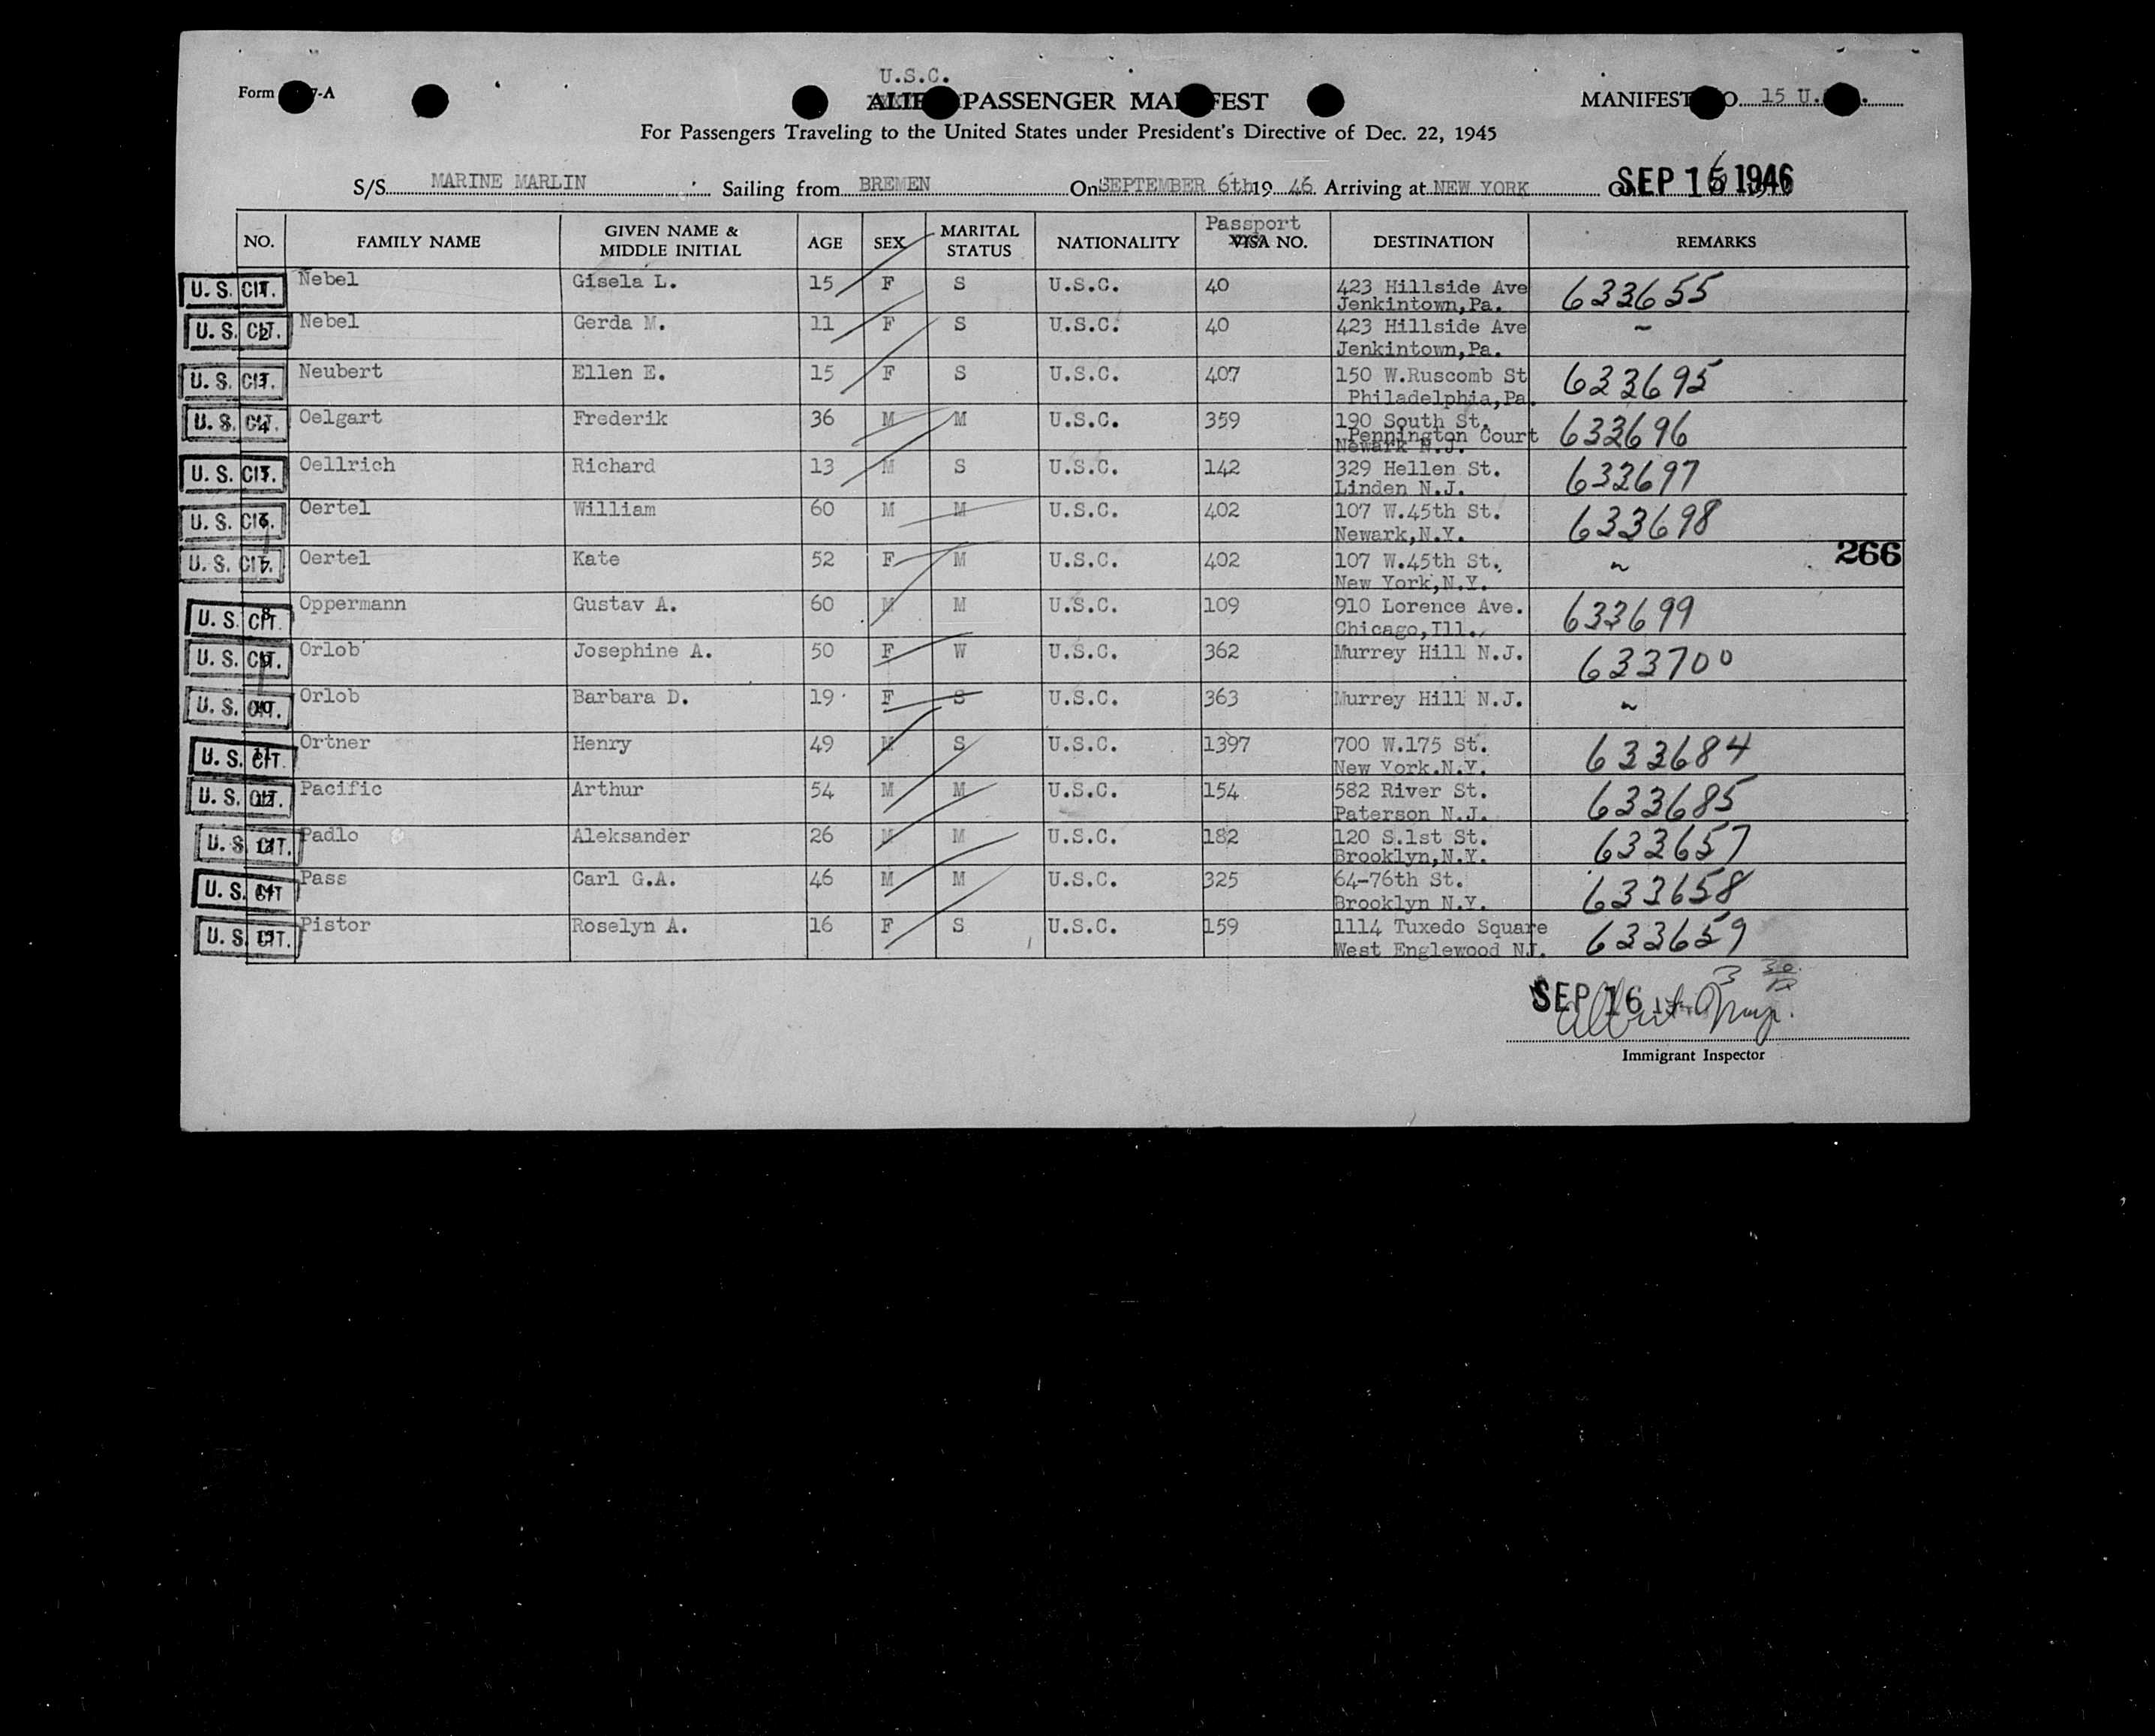 U.S.C.
Form 7-A
ALIE PASSENGER MA FEST
MANIFEST O. 15 U.
For Passengers Traveling to the United States under President's Directive of Dec. 22, 1945
S/S MARINE MARLIN Sailing from BREMEN On SEPTEMBER 6th 19 46 Arriving at NEW YORK SEP 16 1946
NO. FAMILY NAME GIVEN NAME & MIDDLE INITIAL AGE SEX MARITAL STATUS NATIONALITY Passport VISA NO. DESTINATION REMARKS
U. S. CIT. 1 Nebel Gisela L. 15 F S U.S.C. 40 423 Hillside Ave 633655
Jenkintown,Pa.
U. S. CIT. 2 Nebel Gerda M. 11 F S U.S.C. 40 423 Hillside Ave ~
Jenkintown,Pa.
U. S. CIT. 3 Neubert Ellen E. 15 F S U.S.C. 407 150 W.Ruscomb St 633695
Philadelphia,Pa.
U. S. CIT. 4 Oelgart Frederik 36 M M U.S.C. 359 190 South St. 633696
Pennington Court
Newark N.J.
U. S. CIT. 5 Oellrich Richard 13 M S U.S.C. 142 329 Hellen St. 633697
Linden N.J.
U. S. CIT. 6 Oertel William 60 M M U.S.C. 402 107 W.45th St. 633698
Newark,N.Y.
266
U. S. CIT. 7 Oertel Kate 52 F M U.S.C. 402 107 W.45th St. ~
New York,N.Y.
U. S. CIT. 8 Oppermann Gustav A. 60 M M U.S.C. 109 910 Lorence Ave. 633699
Chicago,Ill.
U. S. CIT. 9 Orlob Josephine A. 50 F W U.S.C. 362 Murrey Hill N.J. 633700
U. S. CIT. 10 Orlob Barbara D. 19 F S U.S.C. 363 Murrey Hill N.J. ~
U. S. CIT. 11 Ortner Henry 49 M S U.S.C. 1397 700 W.175 St. 633684
New York.N.Y.
U. S. CIT. 12 Pacific Arthur 54 M M U.S.C. 154 582 River St. 633685
Paterson N.J.
U. S. CIT. 13 Padlo Aleksander 26 M M U.S.C. 182 120 S.1st St. 633657
Brooklyn,N.Y.
U. S. CIT 14 Pass Carl G.A. 46 M M U.S.C. 325 64-76th St. 633658
Brooklyn N.Y.
U. S. CIT. 15 Pistor Roselyn A. 16 F S U.S.C. 159 1114 Tuxedo Square 633659
West Englewood NJ.
SEP 16
Immigrant Inspector